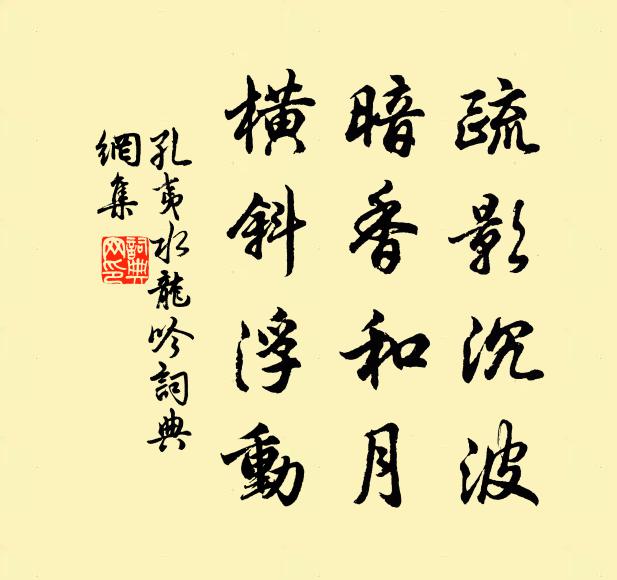 疏影沉波
暗香和月
橫斜浮動
孔夷水龍吟詞典
網集
詞典
网印